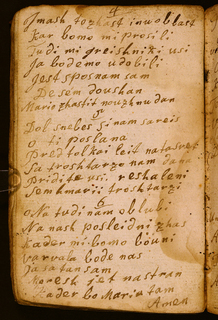 4
Jmash to zhast inu oblast
Kar bomo mi prosili
Tudi mi greishniki usi
Ja bodemo udobili
Jest sposnam sam
De sem doushan
Mario zhastit nouzh nu dan
5
Dol snebes si nam sareis
o ti poslana
Pred tolkai leit
Sa troshtarzo nam dana
Pridite usi reshaleni
Sem kmarii troshtarzi
6
o Na tudi nam oblubi
Na nash posleidni zhas
Kader mi bomo bouni
varvala bode nas
Da satan sam
Moresh jet na stran
Kader bo Maria tam
Amen